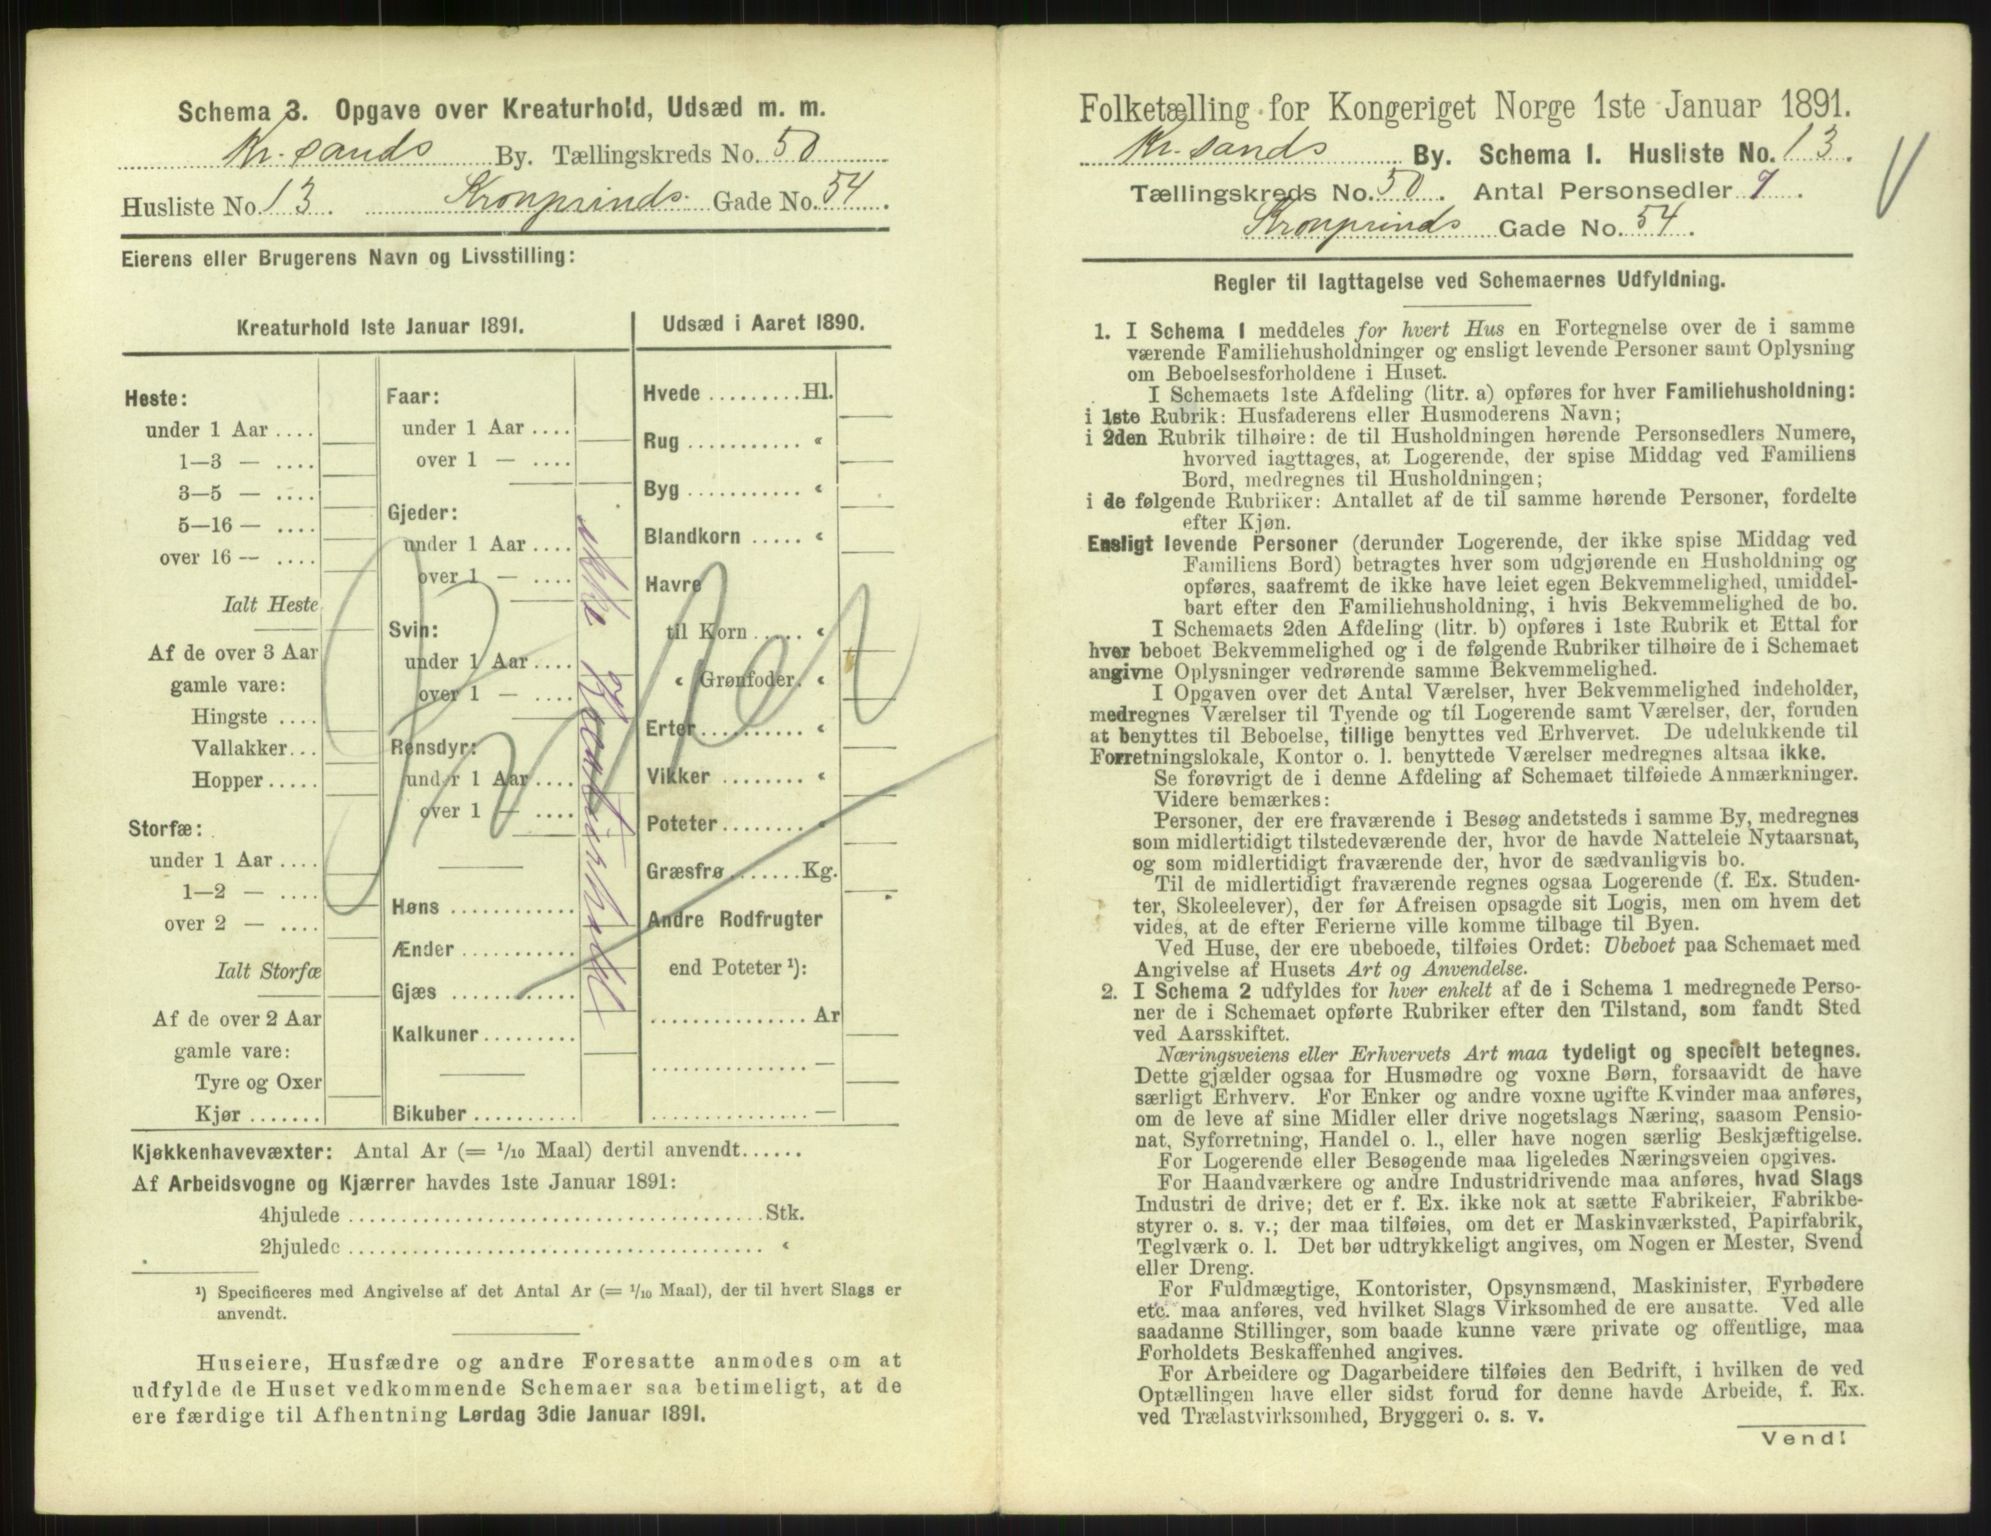 Schema 3. Opgave over Kreaturhold, Udsæd m. m.
Kr. sands By. Tællingskreds No. 50
Husliste No. 13. Kronprinds Gade No. 54.
Eierens eller Brugerens Navn og Livsstilling:
Kreaturhold 1ste Januar 1891.
Heste:
under 1 Aar ....
1—3 — ....
3—5 — ....
5—16 — ....
over 16 — ....
Ialt Heste
Af de over 3 Aar
gamle vare:
Hingste ....
Vallakker...
Hopper.....
Storfæ:
under 1 Aar ....
1—2 — ....
over 2 — ....
Ialt Storfæ
Af de over 2 Aar
gamle vare:
Tyre og Oxer
Kjør .......
Faar:
under 1 Aar ....
over 1 — ....
Gjeder:
under 1 Aar ....
over 1 — ....
Svin:
under 1 Aar ....
over 1 — ....
Rensdyr:
under 1 Aar ....
over 1 — ....
Høns ............
Ænder ...........
Gjæs ............
Kalkuner.........
Bikuber ..........
Udsæd i Aaret 1890.
Hvede .........Hl.
Rug ........... «
Byg ........... «
Blandkorn ..... «
Havre
til Korn ..... «
« Grønfoder. «
Erter.......... «
Vikker ........ «
Poteter........ «
Græsfrø.......Kg.
Andre Rodfrugter
end Poteter ¹):
...............Ar
...............—
...............—
Kjøkkenhavevæxter: Antal Ar (= 1/10 Maal) dertil anvendt......
Af Arbeidsvogne og Kjærrer havdes 1ste Januar 1891:
4hjulede ........................................Stk.
2hjulede ........................................ «
¹) Specificeres med Angivelse af det Antal Ar (= 1/10 Maal), der til hvert Slags er
anvendt.
Huseiere, Husfædre og andre Foresatte anmodes om at
udfylde de Huset vedkommende Schemaer saa betimeligt, at de
ere færdige til Afhentning Lørdag 3die Januar 1891.
Folketælling for Kongeriget Norge 1ste Januar 1891.
Kr. sands By. Schema 1. Husliste No. 13.
Tællingskreds No. 50. Antal Personsedler 9.
Kronprinds Gade No. 54.
Regler til Iagttagelse ved Schemaernes Udfyldning.
1. I Schema 1 meddeles for hvert Hus en Fortegnelse over de i samme
værende Familiehusholdninger og ensligt levende Personer samt Oplysning
om Beboelsesforholdene i Huset.
I Schemaets 1ste Afdeling (litr. a) opføres for hver Familiehusholdning:
i 1ste Rubrik: Husfaderens eller Husmoderens Navn;
i 2den Rubrik tilhøire: de til Husholdningen hørende Personsedlers Numere,
hvorved iagttages, at Logerende, der spise Middag ved Familiens
Bord, medregnes til Husholdningen;
i de følgende Rubriker: Antallet af de til samme hørende Personer, fordelte
efter Kjøn.
Ensligt levende Personer (derunder Logerende, der ikke spise Middag ved
Familiens Bord) betragtes hver som udgjørende en Husholdning og
opføres, saafremt de ikke have leiet egen Bekvemmelighed, umiddel-
bart efter den Familiehusholdning, i hvis Bekvemmelighed de bo.
I Schemaets 2den Afdeling (litr. b) opføres i 1ste Rubrik et Ettal for
hver beboet Bekvemmelighed og i de følgende Rubriker tilhøire de i Schemaet
angivne Oplysninger vedrørende samme Bekvemmelighed.
I Opgaven over det Antal Værelser, hver Bekvemmelighed indeholder,
medregnes Værelser til Tyende og til Logerende samt Værelser, der, foruden
at benyttes til Beboelse, tillige benyttes ved Erhvervet. De udelukkende til
Forretningslokale, Kontor o. l. benyttede Værelser medregnes altsaa ikke.
Se forøvrigt de i denne Afdeling af Schemaet tilføiede Anmærkninger.
Videre bemærkes:
Personer, der ere fraværende i Besøg andetsteds i samme By, medregnes
som midlertidigt tilstedeværende der, hvor de havde Natteleie Nytaarsnat,
og som midlertidigt fraværende der, hvor de sædvanligvis bo.
Til de midlertidigt fraværende regnes ogsaa Logerende (f. Ex. Studen-
ter, Skoleelever), der før Afreisen opsagde sit Logis, men om hvem det
vides, at de efter Ferierne ville komme tilbage til Byen.
Ved Huse, der ere ubeboede, tilføies Ordet: Ubeboet paa Schemaet med
Angivelse af Husets Art og Anvendelse.
2. I Schema 2 udfyldes for hver enkelt af de i Schema 1 medregnede Perso-
ner de i Schemaet opførte Rubriker efter den Tilstand, som fandt Sted
ved Aarsskiftet.
Næringsveiens eller Erhvervets Art maa tydeligt og specielt betegnes.
Dette gjælder ogsaa for Husmødre og voxne Børn, forsaavidt de have
særligt Erhverv. For Enker og andre voxne ugifte Kvinder maa anføres,
om de leve af sine Midler eller drive nogetslags Næring, saasom Pensio-
nat, Syforretning, Handel o. l., eller have nogen særlig Beskjæftigelse.
For Logerende eller Besøgende maa ligeledes Næringsveien opgives.
For Haandværkere og andre Industridrivende maa anføres, hvad Slags
Industri de drive; det er f. Ex. ikke nok at sætte Fabrikeier, Fabrikbe-
styrer o. s. v.; der maa tilføies, om det er Maskinværksted, Papirfabrik,
Teglværk o. l. Det bør udtrykkeligt angives, om Nogen er Mester, Svend
eller Dreng.
For Fuldmægtige, Kontorister, Opsynsmænd, Maskinister, Fyrbødere
etc. maa anføres, ved hvilket Slags Virksomhed de ere ansatte. Ved alle
saadanne Stillinger, som baade kunne være private og offentlige, maa
Forholdets Beskaffenhed angives.
For Arbeidere og Dagarbeidere tilføies den Bedrift, i hvilken de ved
Optællingen have eller sidst forud for denne havde Arbeide, f. Ex.
ved Trælastvirksomhed, Bryggeri o. s. v.
Vend!